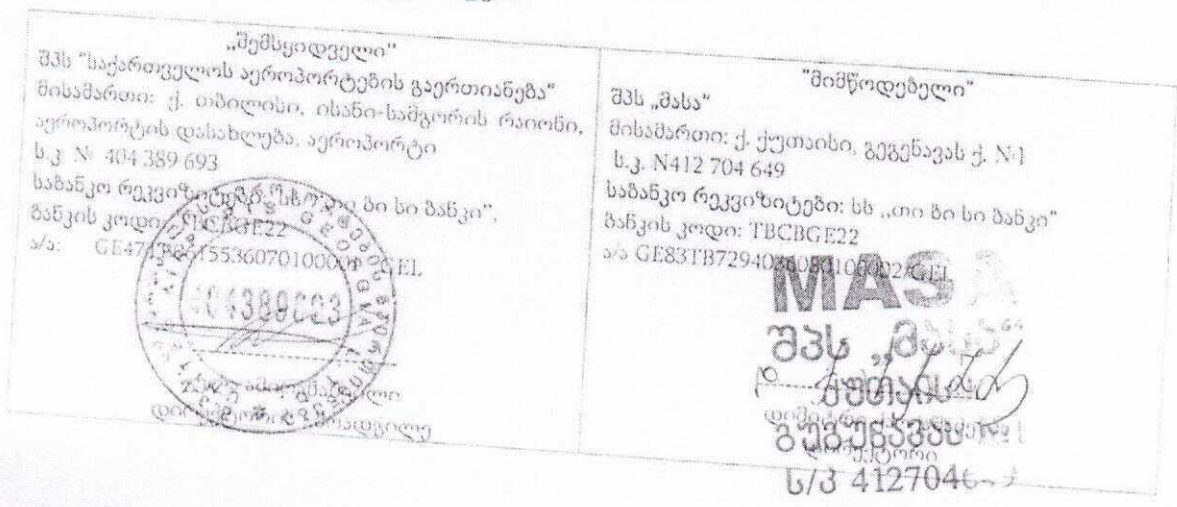 „შემსყიდველი"
შპს "საქართველოს აეროპორტების გაერთიანება"
მისამართი: ქ. თბილისი, ისანი-სამგორის რაიონი,
აეროპორტის დასახლება, აეროპორტი
ს.კ. № 404 389 693
საბანკო რეკვიზიტები: სს „თი ბი სი ბანკი",
ბანკის კოდი: TBCBGE22
ა/ა: GEL
დირექტორის მოადგილე
"მიმწოდებელი"
შპს „მასა"
მისამართი: ქ. ქუთაისი, გეგენავას ქ. N1
ს.კ. N412 704 649
საბანკო რეკვიზიტები: სს „თი ბი სი ბანკი"
ბანკის კოდი: TBCBGE22
ა/ა
MASA
შპს „მასა"
ქუთაისი
დირექტორი
ს/კ